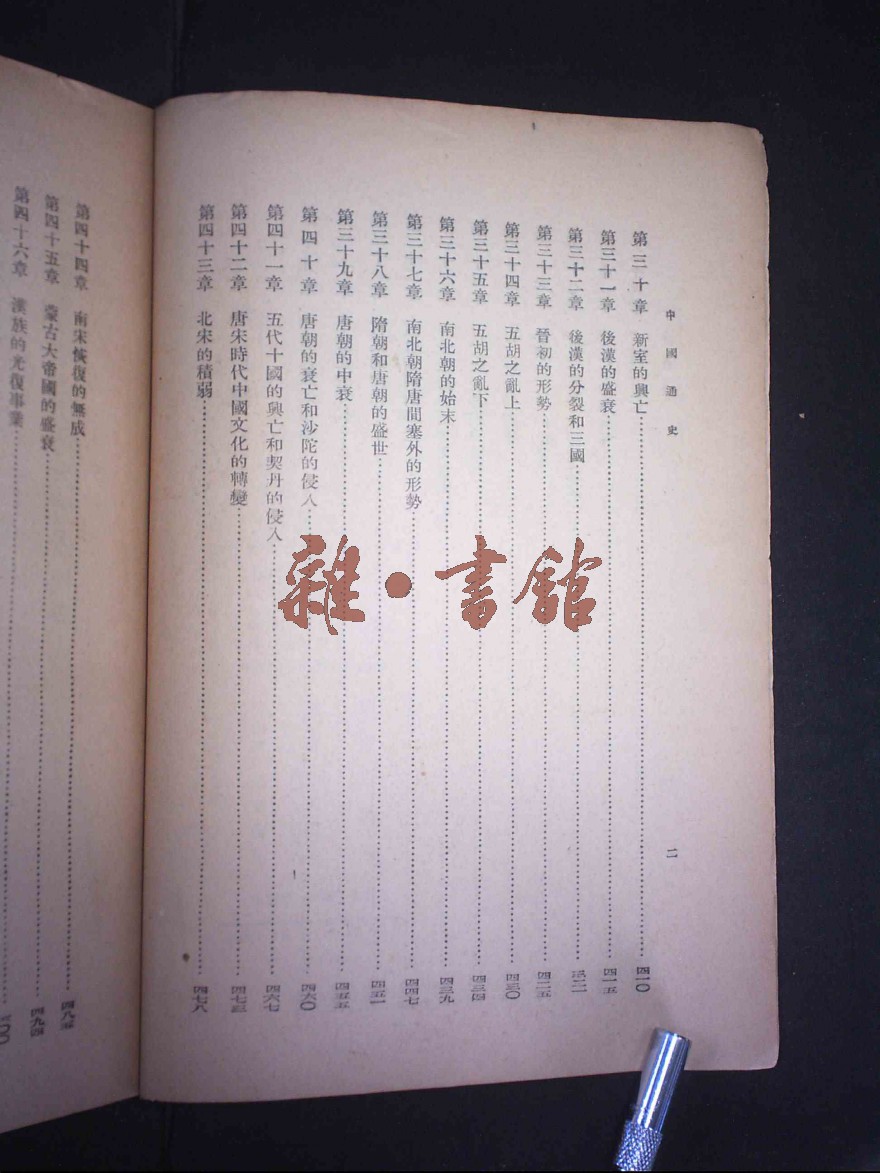 中國通史
二
第三十章 新室的興亡……四一〇
第三十一章 後漢的盛衰……四一五
第三十二章 後漢的分裂和三國……四二一
第三十三章 晉初的形勢……四二五
第三十四章 五胡之亂上……四三〇
第三十五章 五胡之亂下……四三四
第三十六章 南北朝的始末……四三九
第三十七章 南北朝隋唐間塞外的形勢……四四七
第三十八章 隋朝和唐朝的盛世……四五一
第三十九章 唐朝的中衰……四五五
第四十章 唐朝的衰亡和沙陀的侵入……四六〇
第四十一章 五代十國的興亡和契丹的侵入……四六七
第四十二章 唐宋時代中國文化的轉變……四七三
第四十三章 北宋的積弱……四七八
第四十四章 南宋恢復的無成……四八五
第四十五章 蒙古大帝國的盛衰……四九四
第四十六章 漢族的光復事業……五〇〇
雜·書館